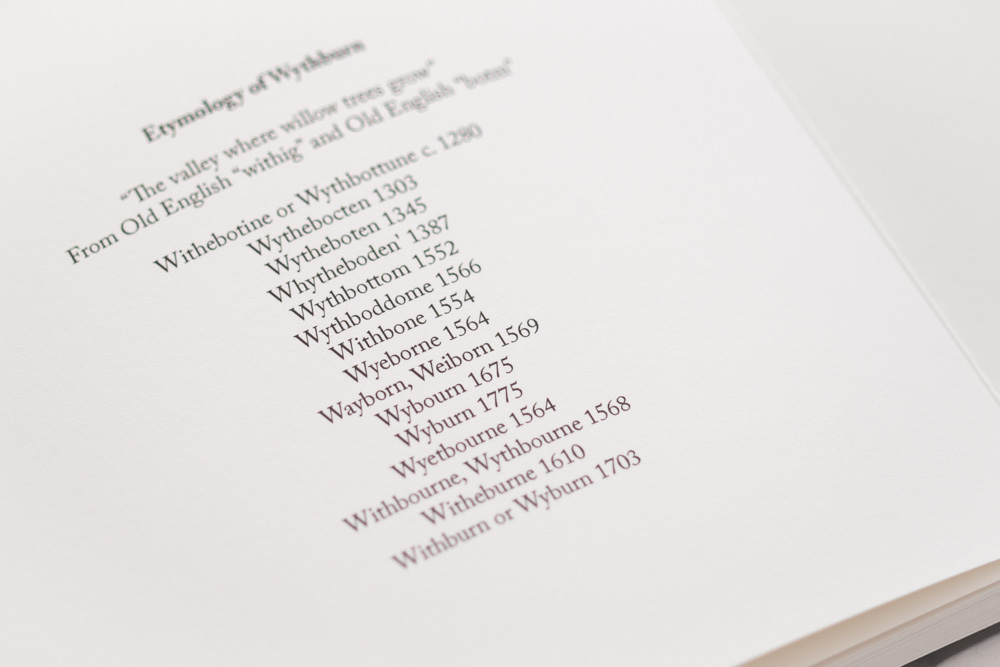 Etymology of Wythburn
“The valley where willow trees grow”
From Old English “withig” and Old English “botm”
Withebotine or Wythbottune c. 1280
Wythebocten 1303
Wytheboten 1345
Whytheboden' 1387
Wythbottom 1552
Wythboddome 1566
Withbone 1554
Wyeborne 1564
Wayborn, Weiborn 1569
Wybourn 1675
Wyburn 1775
Wyetbourne 1564
Withbourne, Wythbourne 1568
Witheburne 1610
Withburn or Wyburn 1703